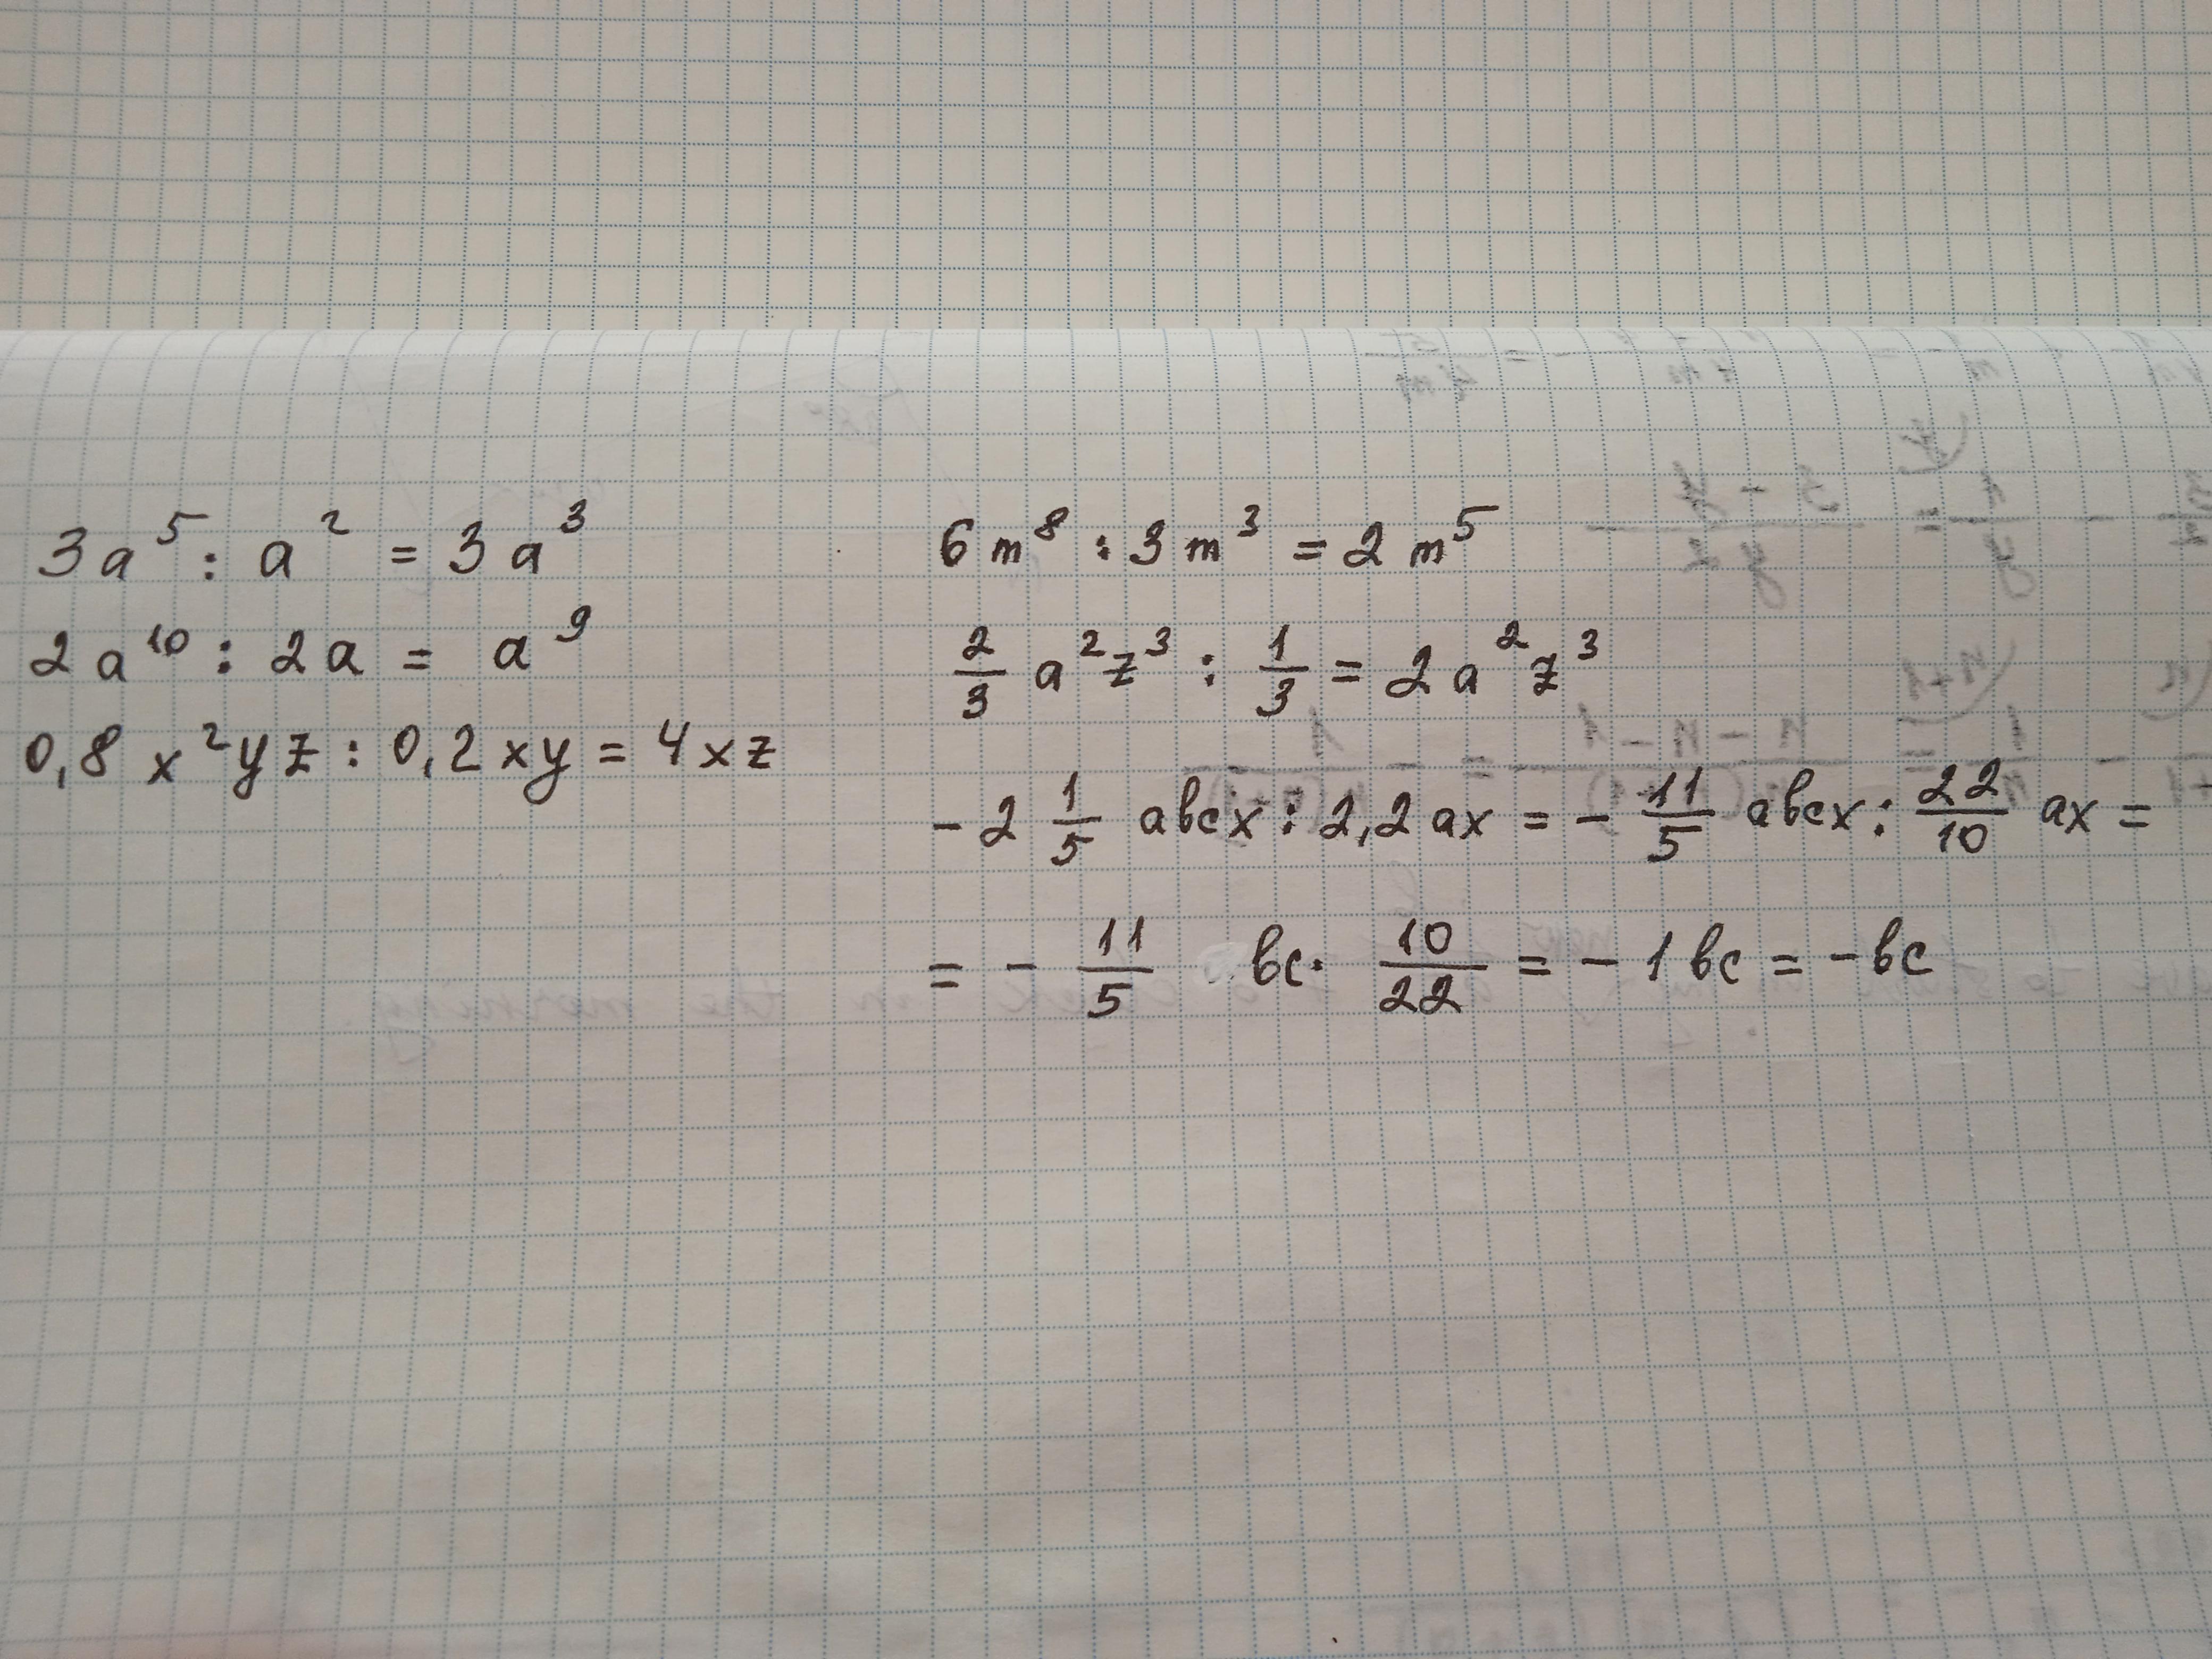 3a⁵ : a² = 3a³
2a¹⁰ : 2a = a⁹
0,8 x²yz : 0,2xy = 4xz
6m⁸ : 3m³ = 2m⁵
2/3 a²z³ : 1/3 = 2a²z³
-2 1/5 abcx : 2,2ax = - 11/5 abcx : 22/10 ax =
= - 11/5 bc · 10/22 = -1bc = -bc